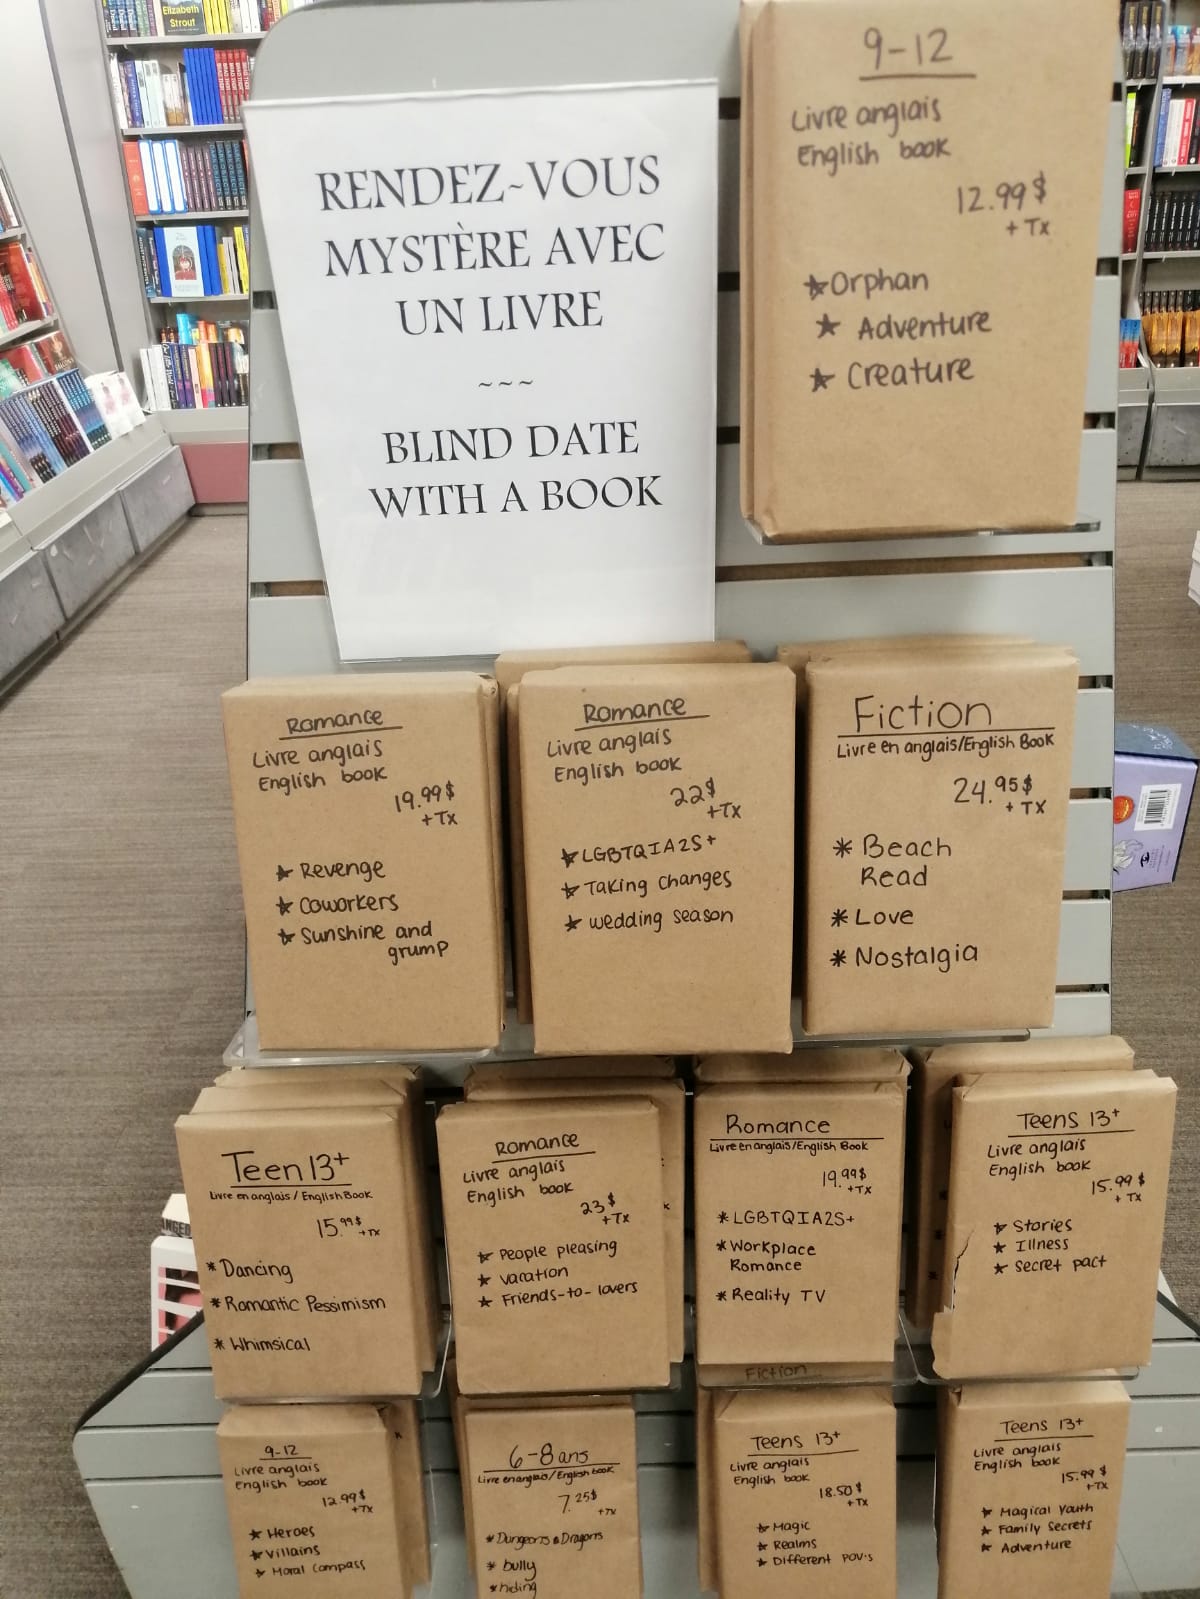 Elizabeth
Strout
RENDEZ~VOUS
MYSTÈRE AVEC
UN LIVRE
~~~
BLIND DATE
WITH A BOOK
9-12
Livre anglais
English book
12.99$
+ Tx
Orphan
Adventure
Creature
Romance
Livre anglais
English book
19.99$
+ Tx
Revenge
Coworkers
Sunshine and
grump
Romance
Livre anglais
English book
22$
+Tx
LGBTQIA2S+
Taking changes
wedding season
Fiction
Livre en anglais/English Book
24.95$
+ TX
* Beach
Read
* Love
* Nostalgia
Teen 13+
Livre en anglais / English Book
15.99$ +TX
* Dancing
* Romantic Pessimism
* Whimsical
Romance
Livre anglais
English book
23$
+Tx
People pleasing
vacation
Friends-to-lovers
Romance
Livre en anglais/English Book
19.99$
+TX
* LGBTQIA2S+
* Workplace
Romance
* Reality TV
Teens 13+
Livre anglais
English book
15.99$
+ Tx
Stories
Illness
secret pact
Fiction
9-12
Livre anglais
English book
12.99$
+Tx
Heroes
Villains
Moral compass
6-8 ans
Livre en anglais/English book
7.25$
+Tx
* Dungeons & Dragons
* bully
* hiding
Teens 13+
Livre anglais
English book
18.50$
+Tx
Magic
Realms
Different POV's
Teens 13+
Livre anglais
English book
15.99$
+Tx
Magical youth
Family secrets
Adventure